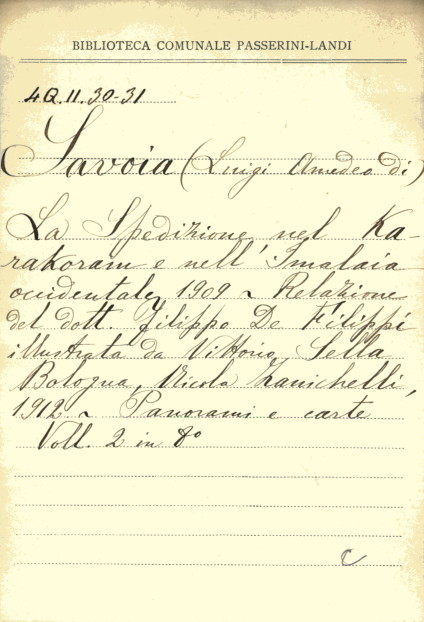 BIBLIOTECA COMUNALE PASSERINI-LANDI
4Q.11.30-31
Savoia (Luigi Amedeo di)
La Spedizione nel Ka-
rakoram e nell'Imalaia
occidentale, 1909 ~ Relazione
del dott. Filippo De Filippi
illustrata da Vittorio Sella
Bologna, Nicola Zanichelli,
1912 ~ Panorami e carte
Voll. 2 in 8º
C